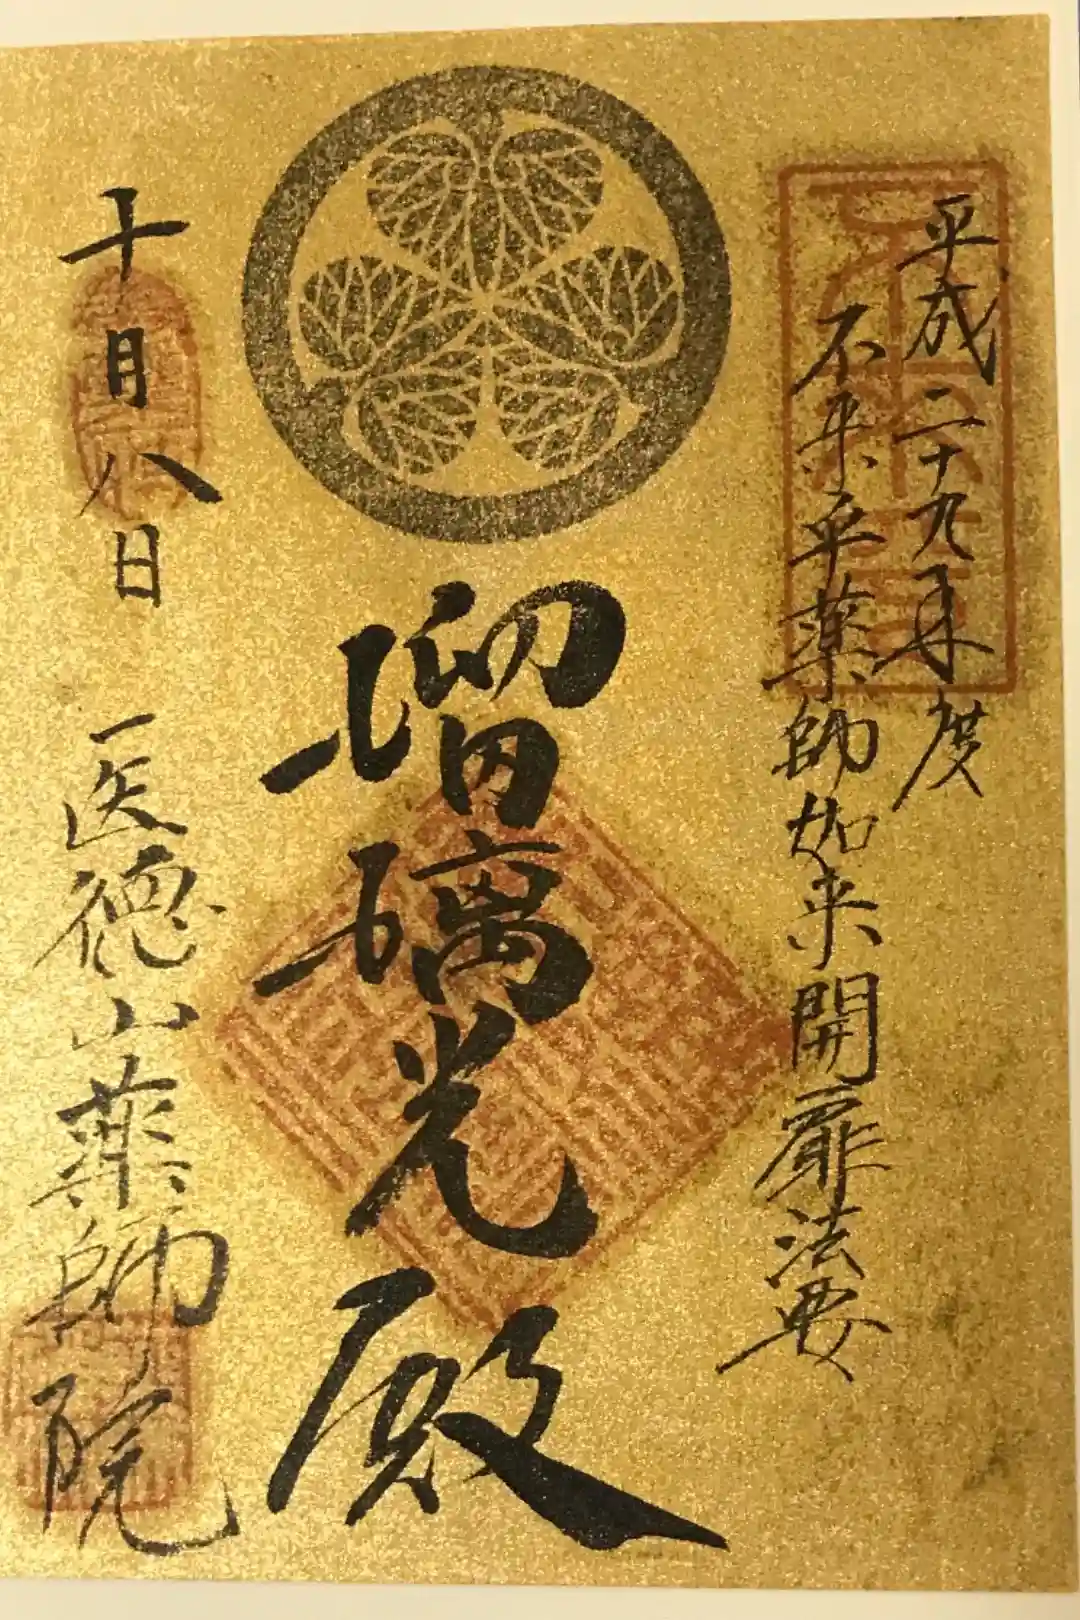 平成二十九年度
薬師如来開扉法要
瑠璃光殿
十月八日
医徳山薬師院